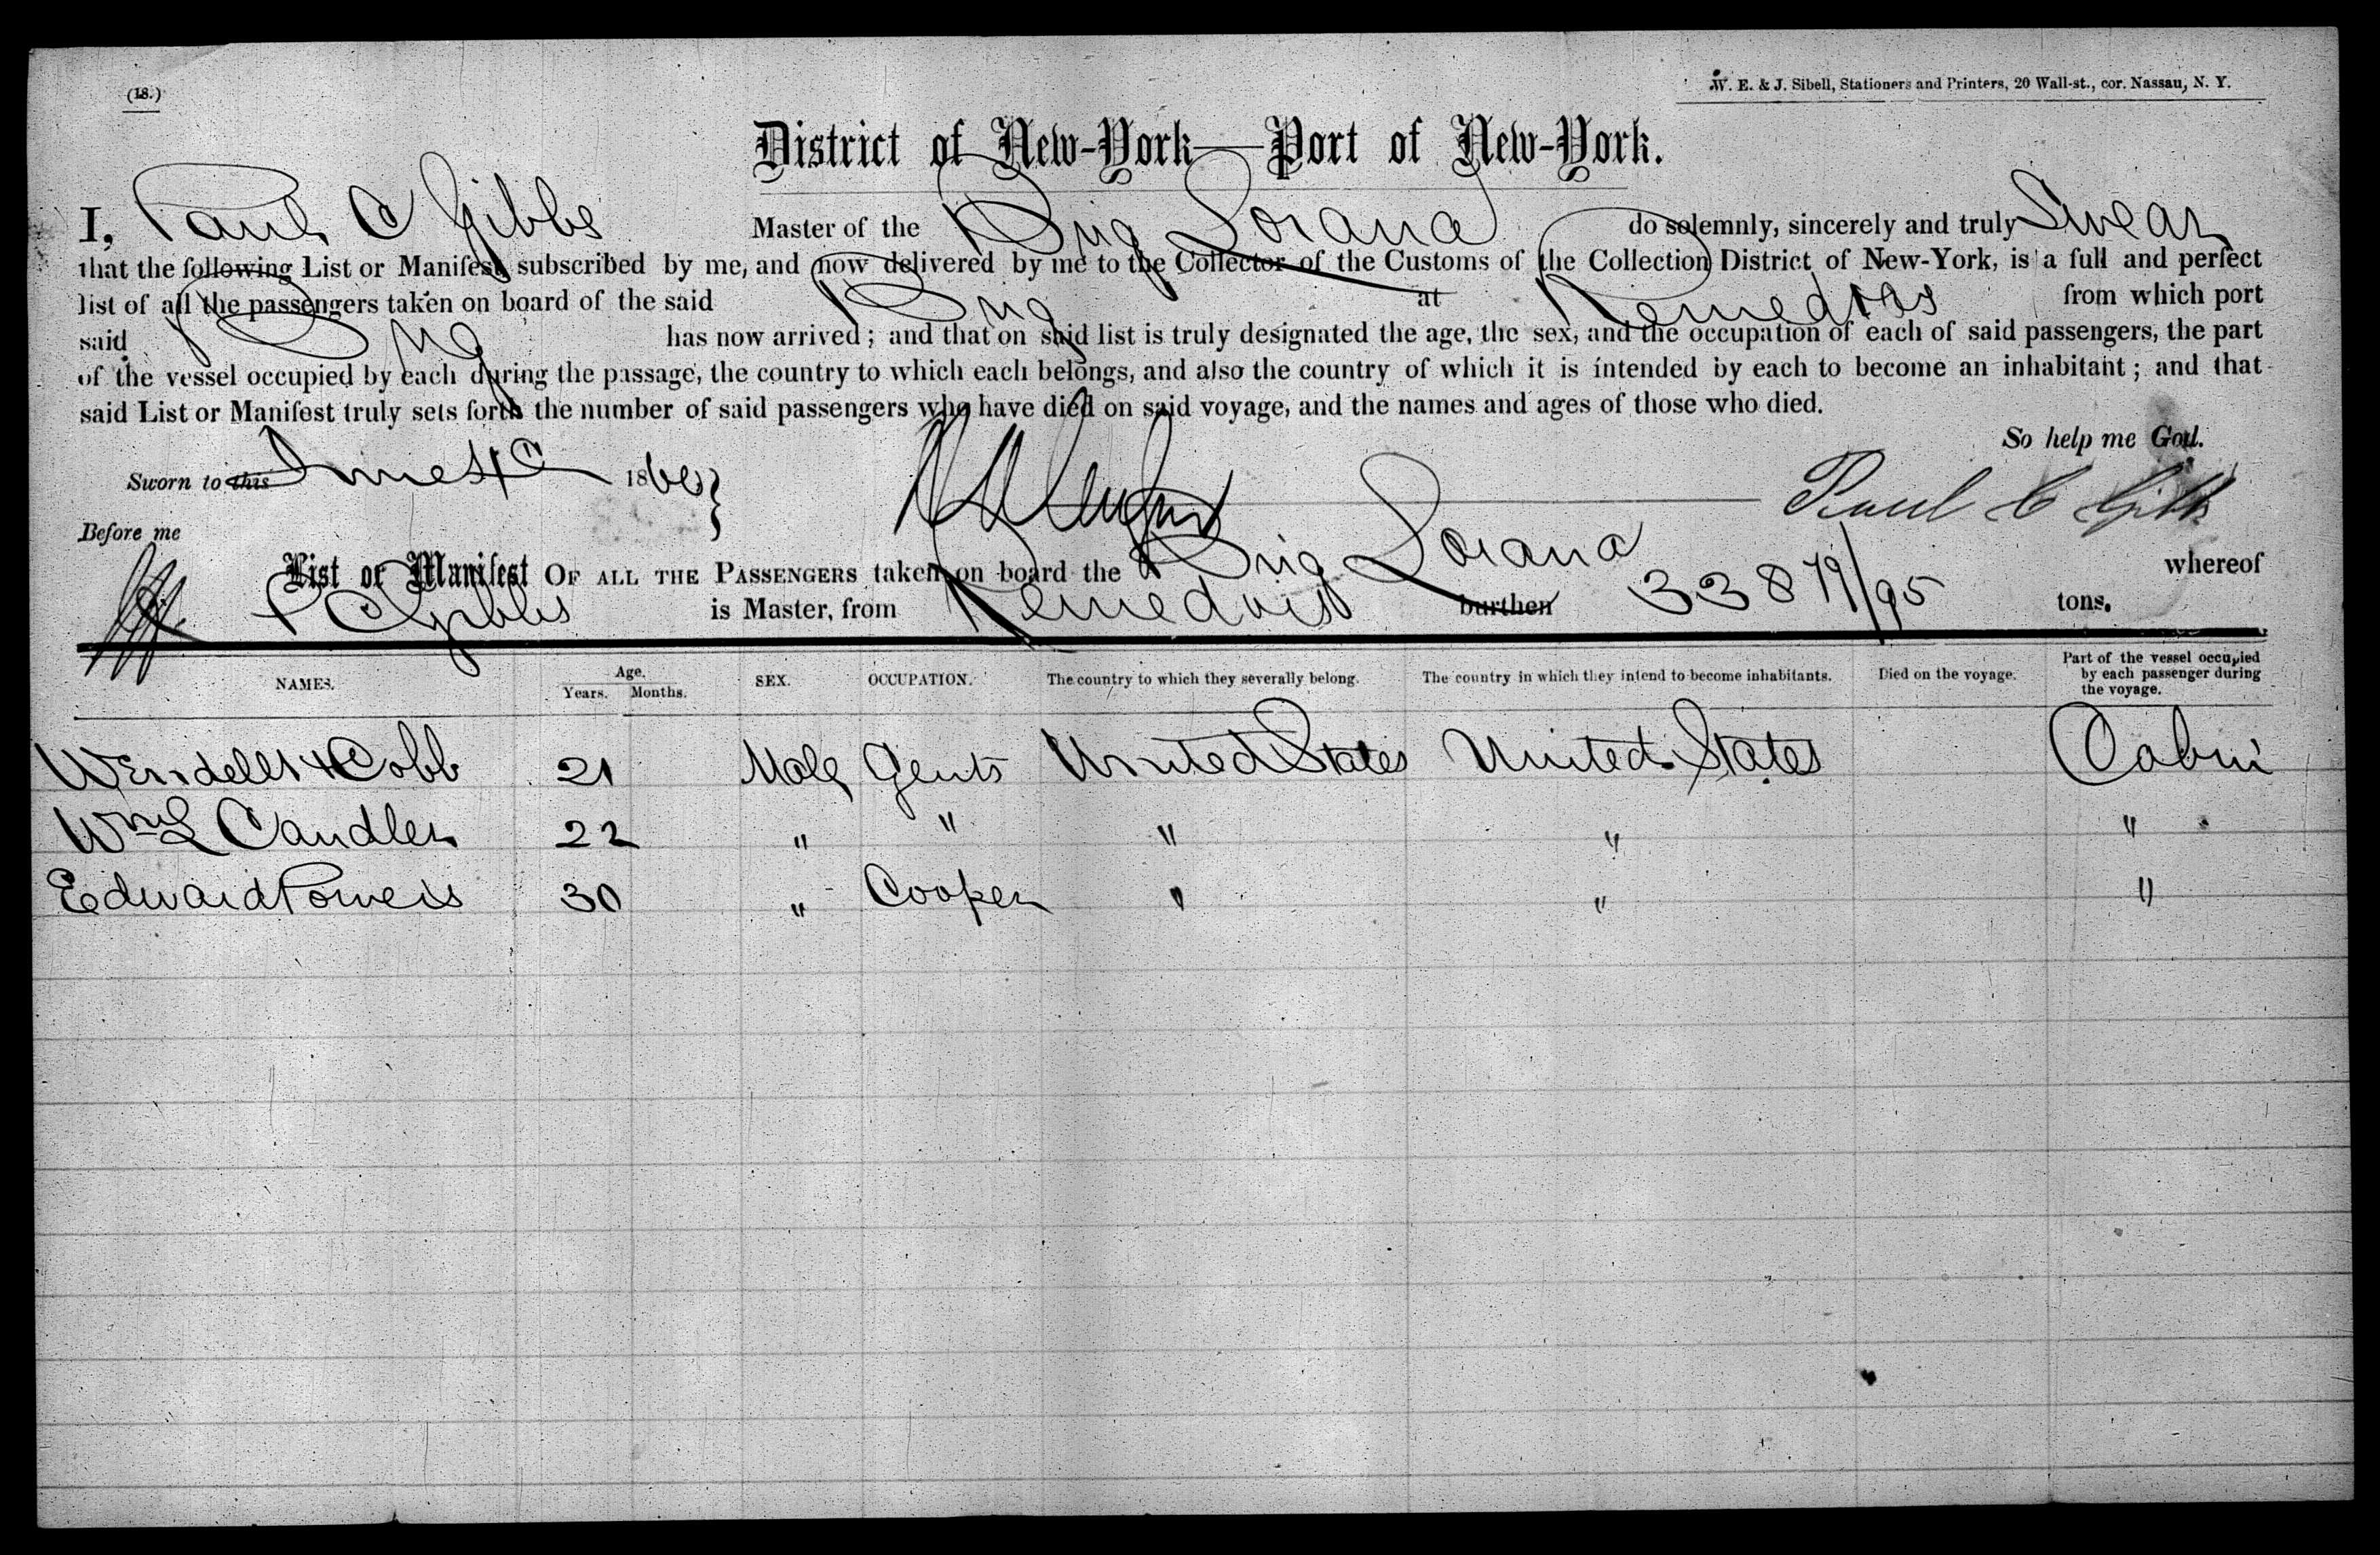 (18.)
W. E. & J. Sibell, Stationers and Printers, 20 Wall-st., cor. Nassau, N. Y.
District of New-York—Port of New-York.
I, Paul C Gibbs Master of the Brig Lorana do solemnly, sincerely and truly Swear
that the following List or Manifest, subscribed by me, and now delivered by me to the Collector of the Customs of the Collection District of New-York, is a full and perfect
list of all the passengers taken on board of the said Brig at Remedios from which port
said Brig has now arrived; and that on said list is truly designated the age, the sex, and the occupation of each of said passengers, the part
of the vessel occupied by each during the passage, the country to which each belongs, and also the country of which it is intended by each to become an inhabitant; and that
said List or Manifest truly sets forth the number of said passengers who have died on said voyage, and the names and ages of those who died.
So help me God.
Sworn to this June 186
Paul C Gibbs
Before me
List or Manifest OF ALL THE PASSENGERS taken on board the Brig Lorana whereof
P C Gibbs is Master, from Remedios burthen 338 79/95 tons.
NAMES. Age. Years. Months. SEX. OCCUPATION. The country to which they severally belong. The country in which they intend to become inhabitants. Died on the voyage. Part of the vessel occupied by each passenger during the voyage.
Wendell H Cobb 21 Male Gents United States United States Cabin
Wm L Candler 22 " " " " "
Edward Powers 30 " Cooper " " "